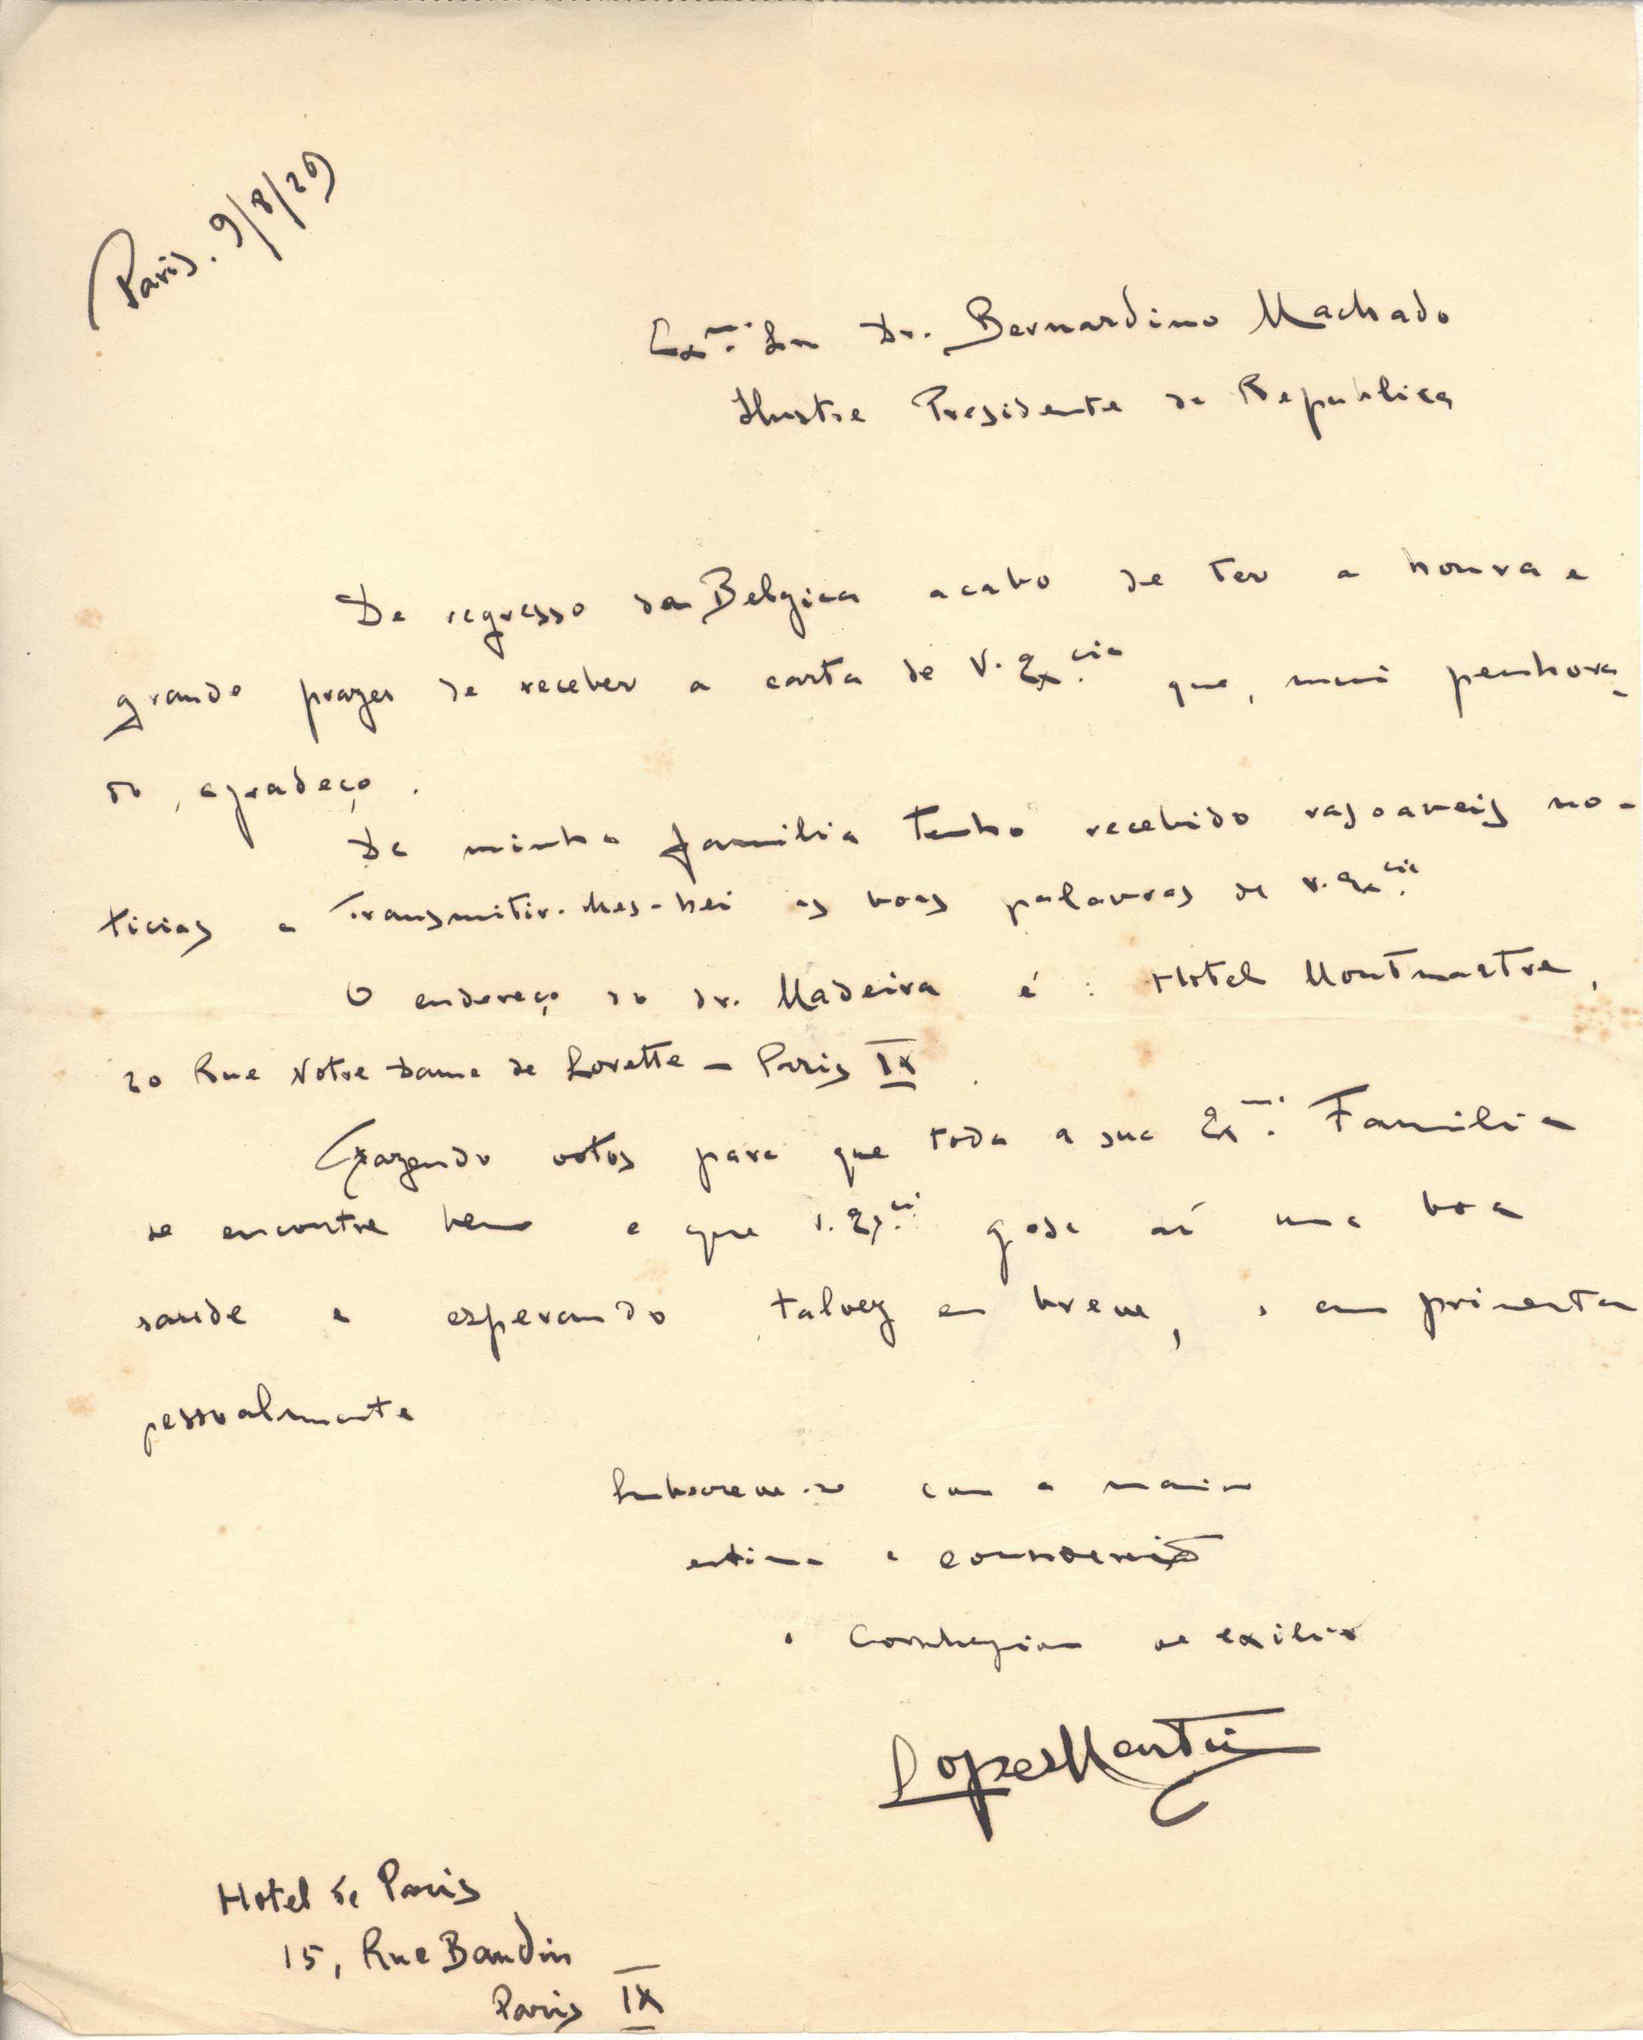 Paris. 9/8/29
Ex.mo Sr. Dr. Bernardino Machado
Ilustre Presidente da Republica
De regresso da Belgica acabo de ter a honra e
grande prazer de receber a carta de V. Ex.cia que, mui penhora-
do, agradeço.
De minha familia tenho recebido rasoaveis no-
ticias e transmitir-lhes-hei as boas palavras de V. Ex.cia
O endereço do dr. Madeira é: Hotel Montmartre,
20 Rue Notre Dame de Lorette - Paris IX
Fazendo votos para que toda a sua Ex.ma Familia
se encontre bem e que V. Ex.cia gose aí uma boa
saude e esperando talvez em breve, o cumprimentar
pessoalmente
Subscreve-se com a maior
estima e consideração
o Correligion. de exilio
Lopes Martins
Hotel de Paris
15, Rue Baudin
Paris IX